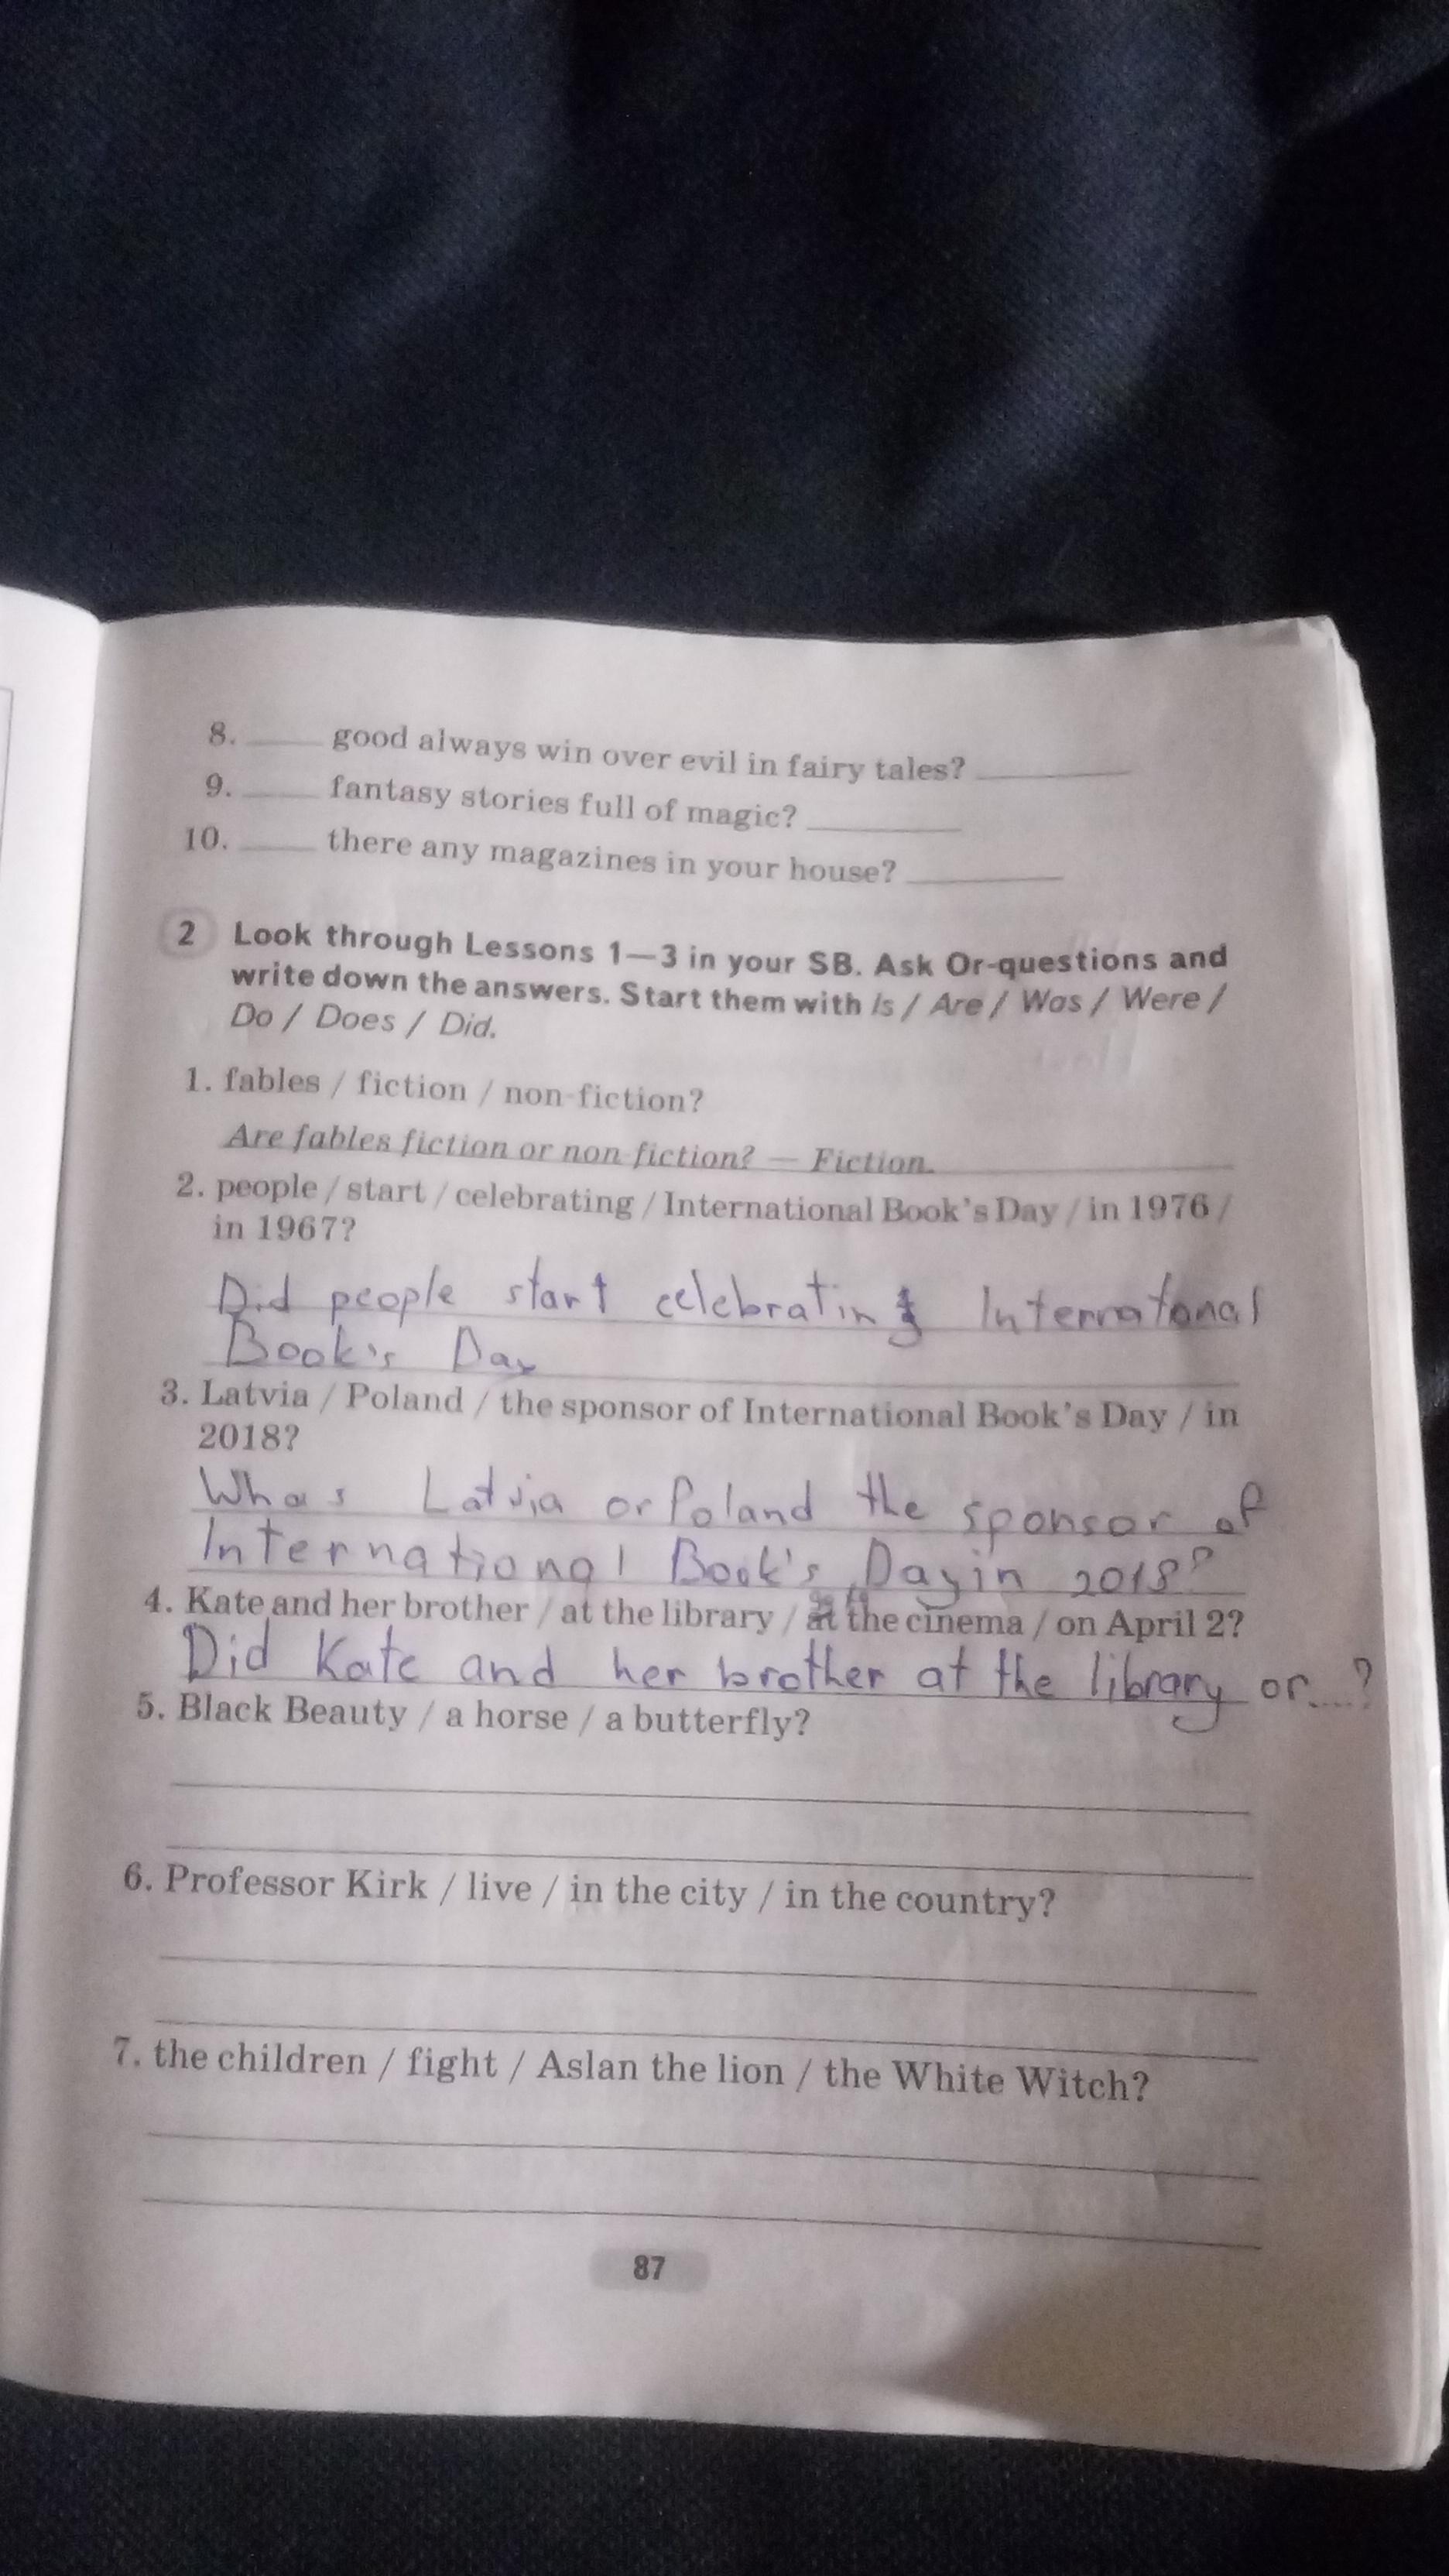 8. ____ good always win over evil in fairy tales? ________
9. ____ fantasy stories full of magic? ________
10. ____ there any magazines in your house? ________
2 Look through Lessons 1—3 in your SB. Ask Or-questions and
write down the answers. Start them with Is / Are / Was / Were /
Do / Does / Did.
1. fables / fiction / non-fiction?
Are fables fiction or non-fiction? — Fiction.
2. people / start / celebrating / International Book's Day / in 1976 /
in 1967?
Did people start celebrating Internatonal
Book's Day
3. Latvia / Poland / the sponsor of International Book's Day / in
2018?
Whas Latvia or Poland the sponsor of
International Book's Day in 2018?
4. Kate and her brother / at the library / at the cinema / on April 2?
Did Kate and her brother at the library or....?
5. Black Beauty / a horse / a butterfly?
6. Professor Kirk / live / in the city / in the country?
7. the children / fight / Aslan the lion / the White Witch?
87